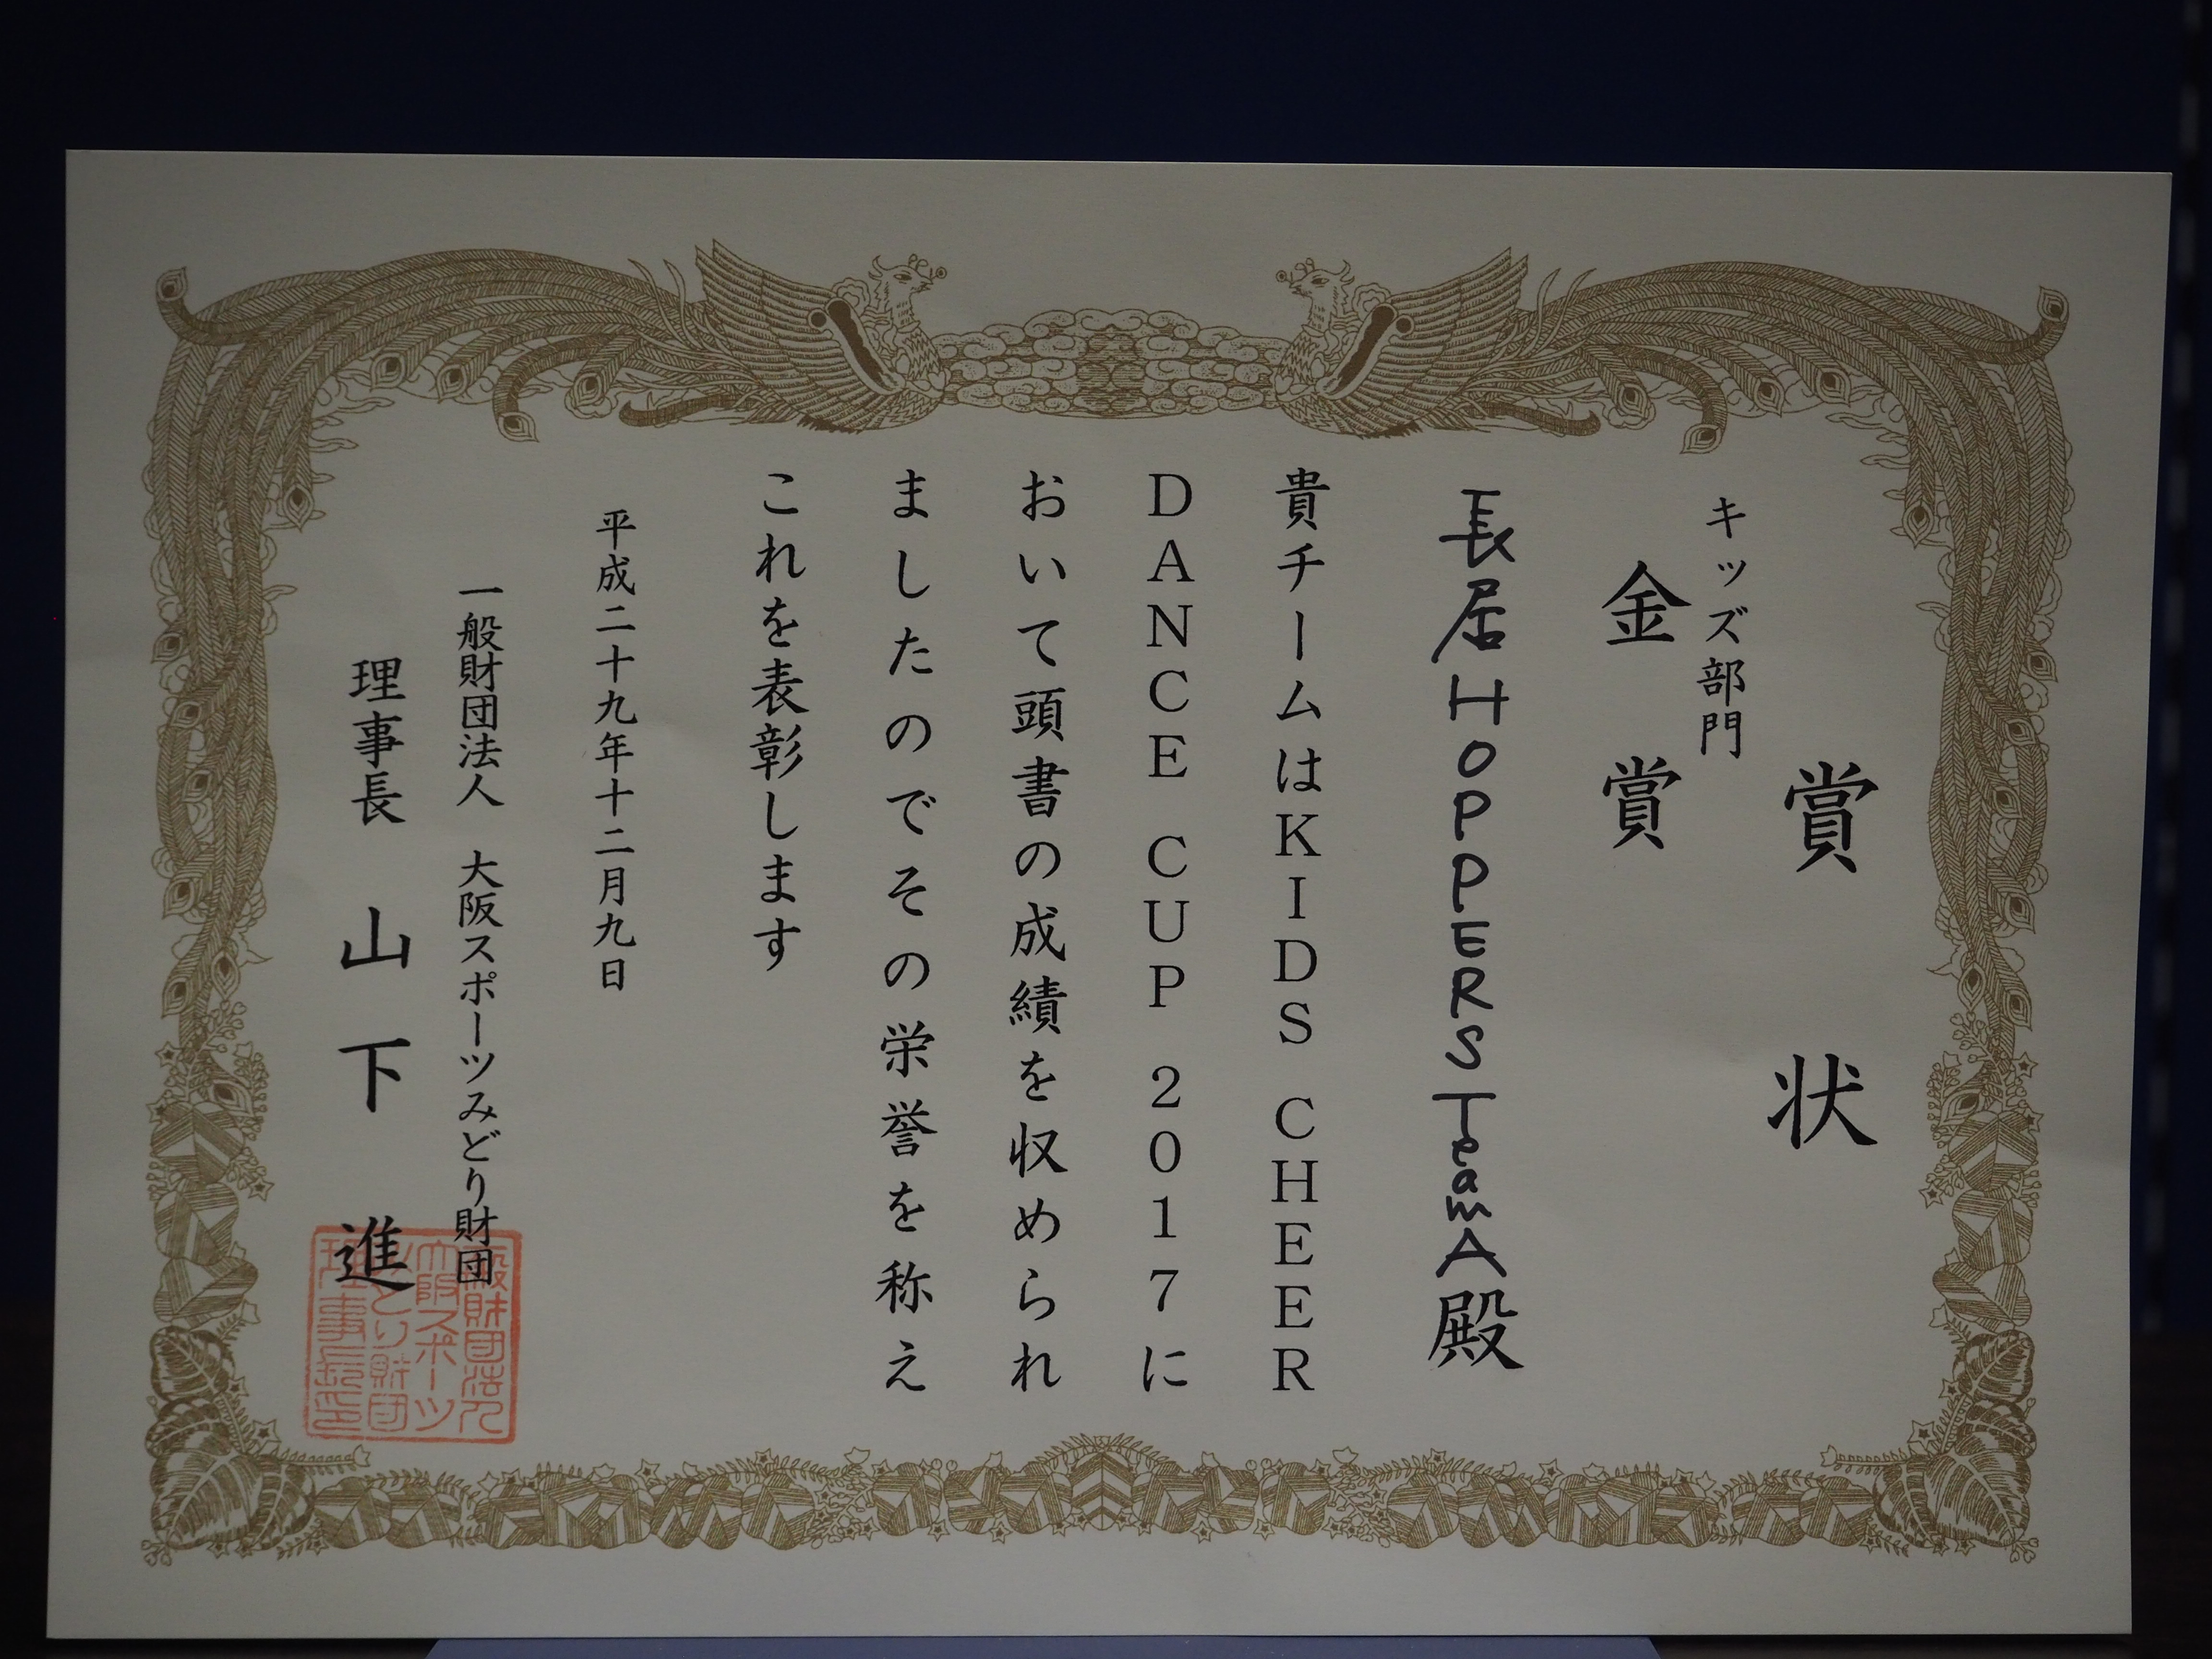 賞状
キッズ部門
金賞
長居HOPPERS TeamA殿
貴チームはKIDS CHEER
DANCE CUP 2017に
おいて頭書の成績を収められ
ましたのでその栄誉を称え
これを表彰します
平成二十九年十二月九日
一般財団法人 大阪スポーツみどり財団
理事長 山下 進
一般財団法人
大阪スポーツ
みどり財団
理事長印